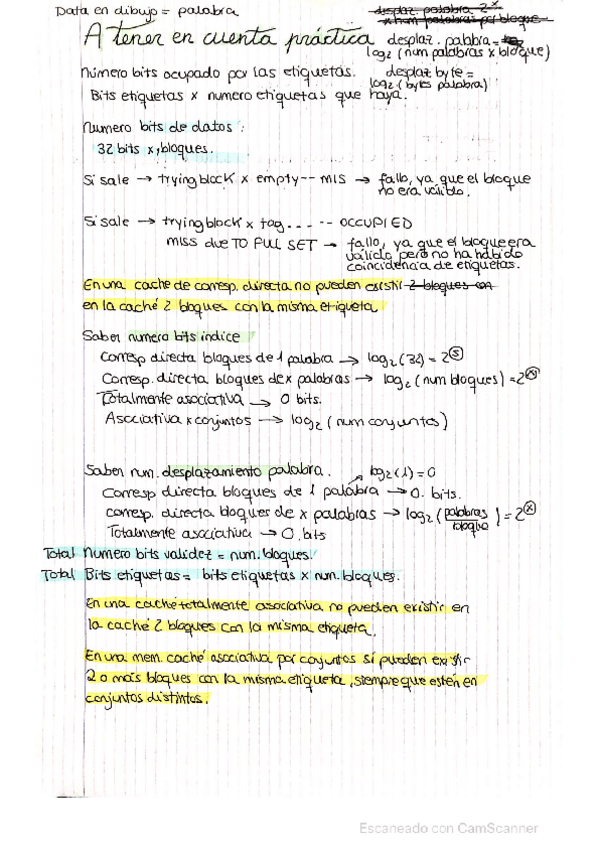 Data en dibujo = palabra
desplaz. palabra 2^x
x num palabras por bloque
A tener en cuenta práctica
desplaz. palabra =
log₂ (num palabras x bloque)
Número bits ocupado por las etiquetas.
desplaz byte =
log₂ (bytes palabra)
Bits etiquetas x numero etiquetas que haya.
Numero bits de datos:
32 bits x bloques.
Si sale → trying block x empty -- MIS → fallo, ya que el bloque
no era válido.
Si sale → trying block x tag . . . - -- OCCUPIED
MISS due TO FULL SET → fallo, ya que el bloque era
válido pero no ha habido
coincidencia de etiquetas.
En una cache de corresp. directa no pueden existir 2 bloques con
en la caché 2 bloques con la misma etiqueta
Saber numero bits indice
Corresp directa bloques de 1 palabra → log₂ (32) = 2^5
Corresp. directa bloques de x palabras → log₂ (num bloques) = 2^x
Totalmente asociativa → 0 bits.
Asociativa x conjuntos → log₂ (num conjuntos)
Saber num. desplazamiento palabra.
log₂ (1) = 0
Corresp directa bloques de 1 palabra → 0. bits.
corresp. directa bloques de x palabras → log₂ (palabras/bloque) = 2^x
Totalmente asociativa → 0. bits
Total Numero bits validez = num. bloques.
Total Bits etiquetas = bits etiquetas x num. bloques.
En una caché totalmente asociativa no pueden existir en
la caché 2 bloques con la misma etiqueta.
En una mem. caché asociativa por conjuntos si pueden existir
2 o más bloques con la misma etiqueta, siempre que estén en
conjuntos distintos.
Escaneado con CamScanner